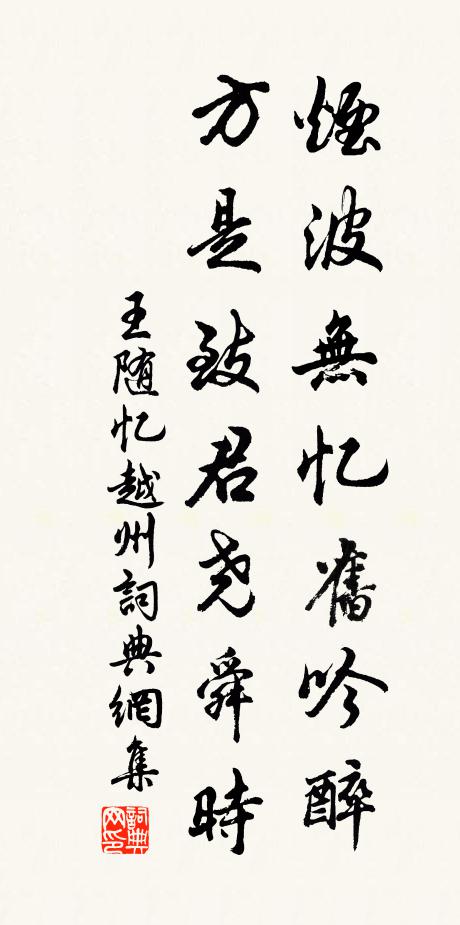 煙波無忆舊吟醉
方是致君尧舜時
王随忆越州詞典網集
詞典网印